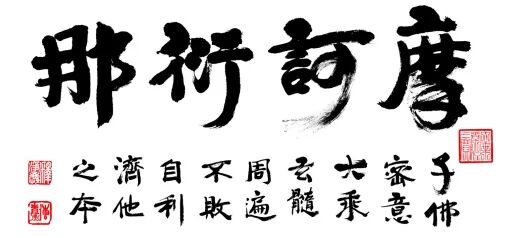 摩訶衍那
千佛
密意
大乘
玄髓
周遍
不敗
自利
濟他
之本